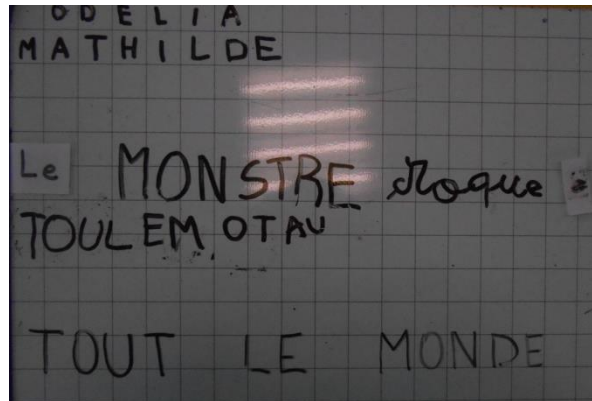 ODELIA
MATHILDE
Le MONSTRE croque
TOULEM OTAU
TOUT LE MONDE